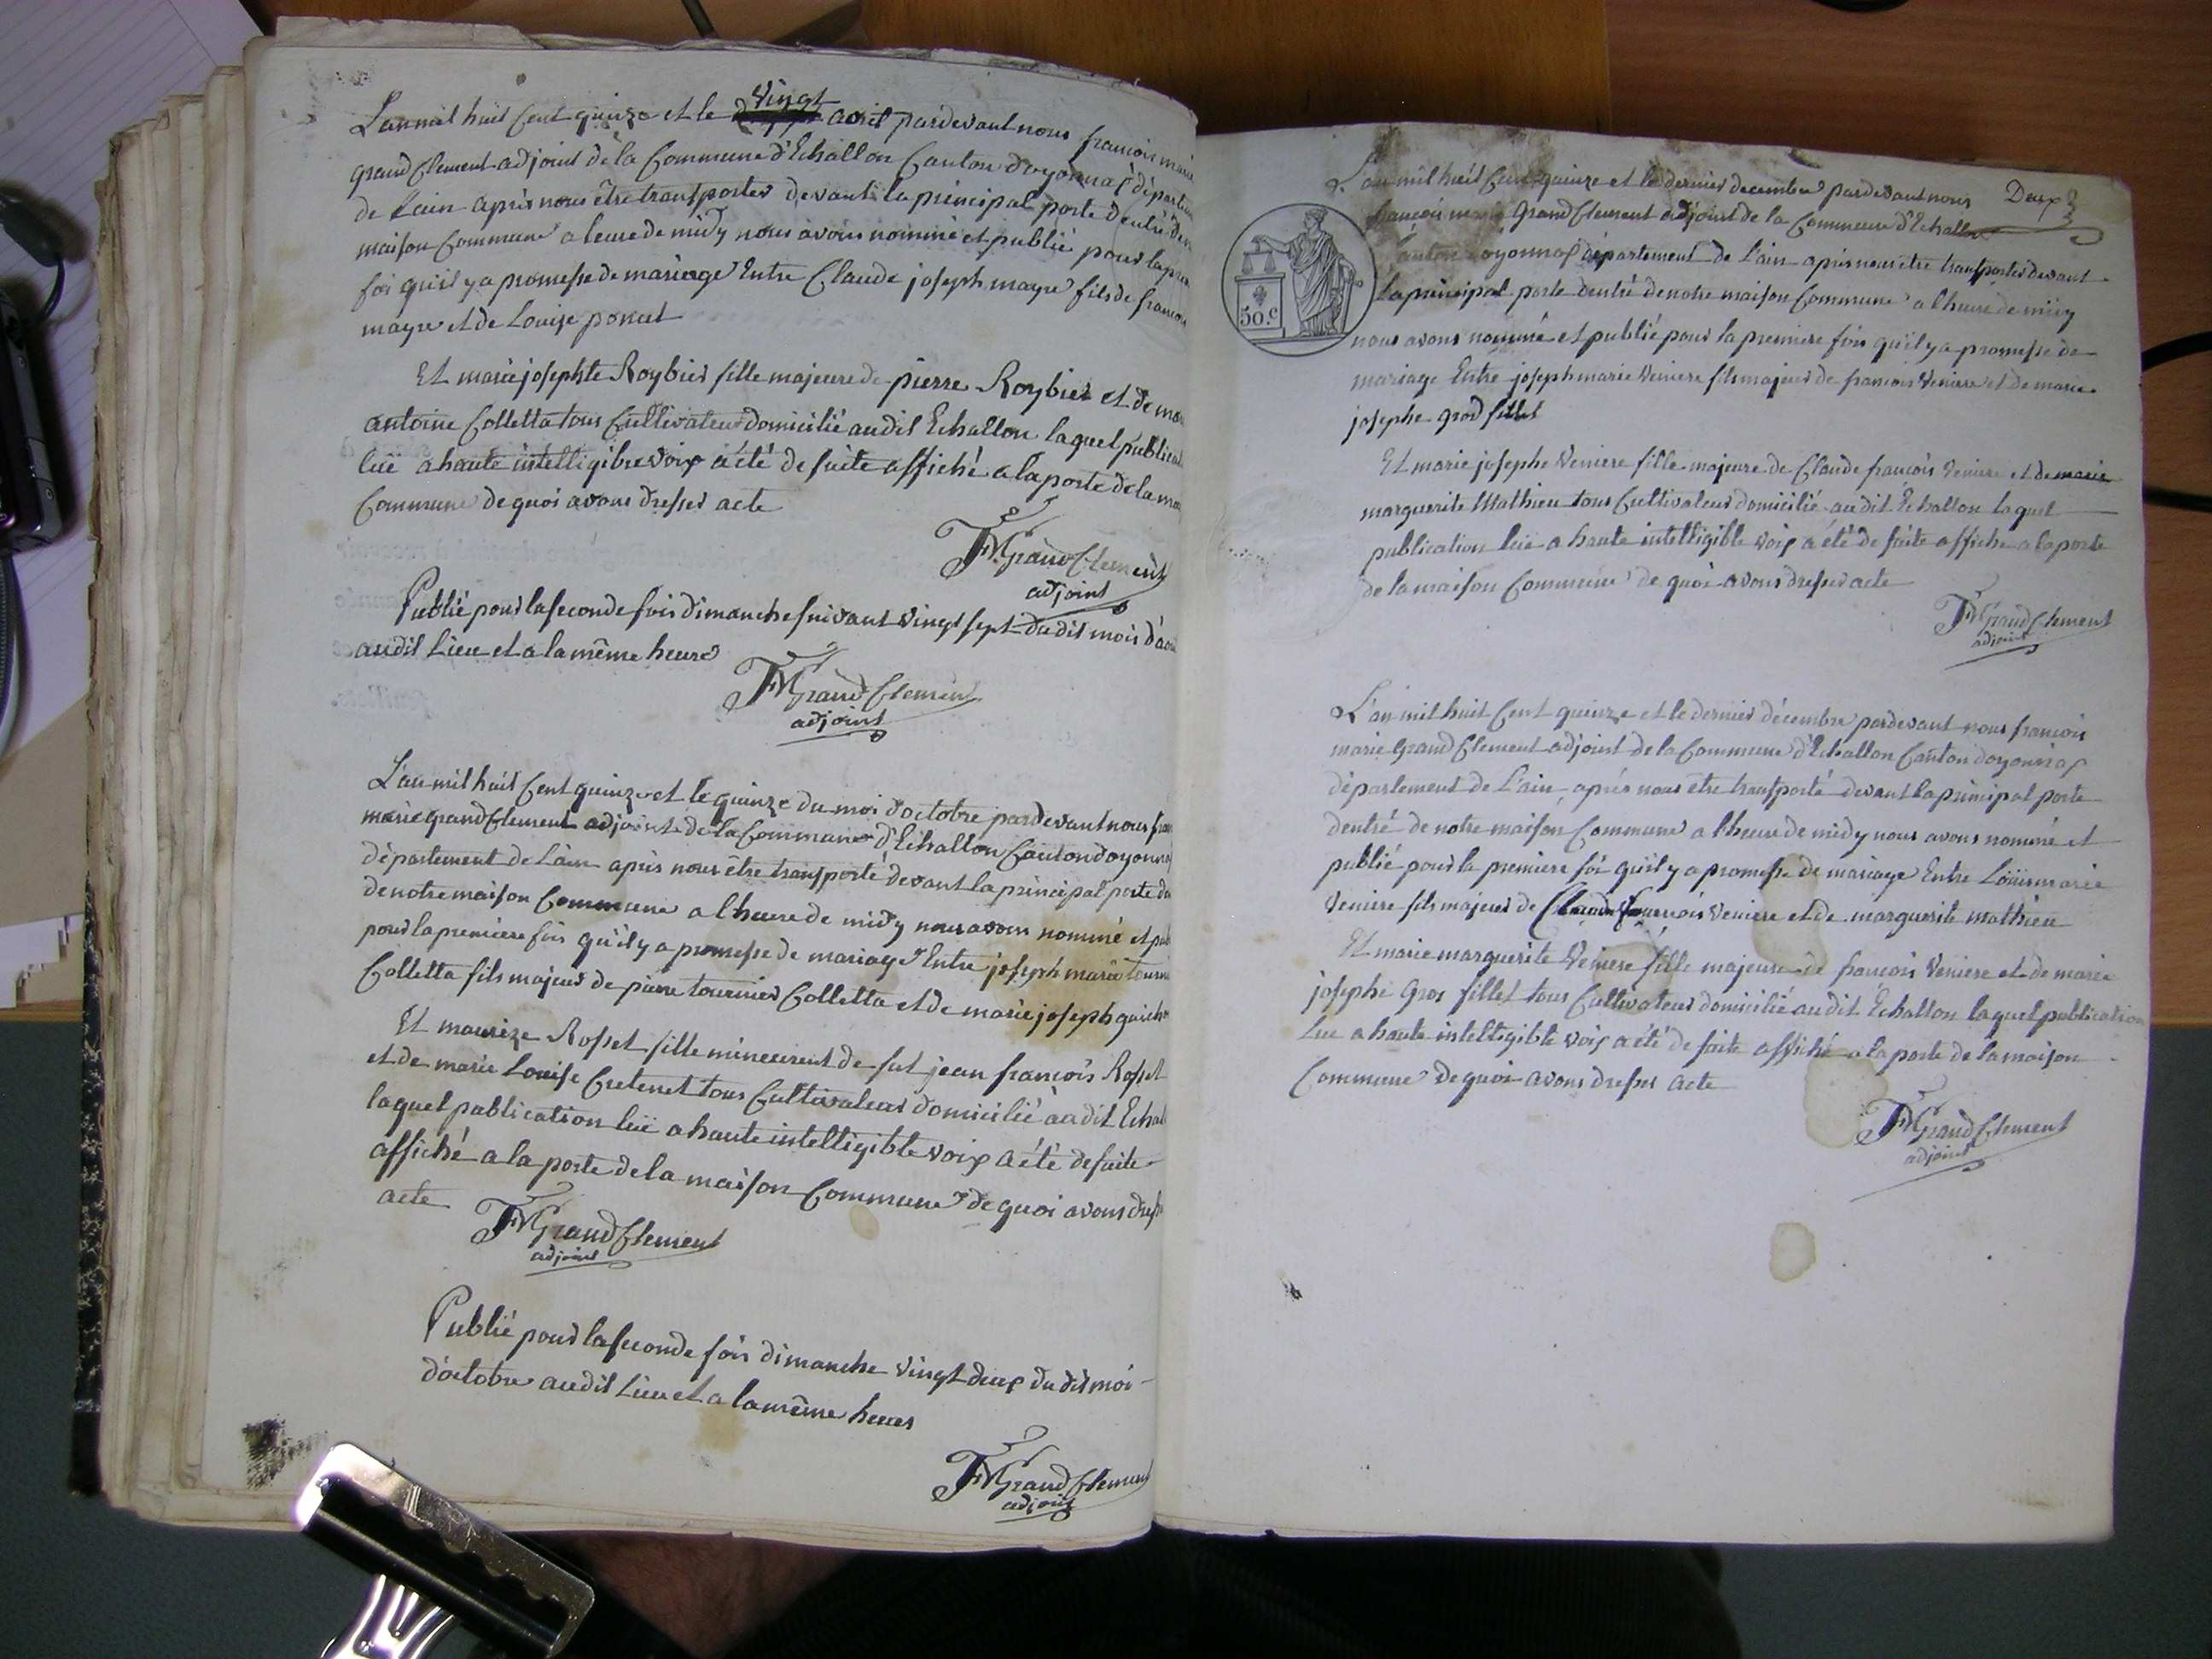 L'an mil huit Cent quinze et le vingt aout pardevant nous francois marie
grand Clement adjoint de la Commune d'Echallon Canton d'oyonnax départem
de Lain après nous être transporter devant la principal porte d'entré de
maison Commune a leure de midy nous avons nommé et publié pour la pre
foi qu'il y a promesse de mariage Entre Claude joseph mayre fils de francois
mayre et de Louise ponat
Et marie josephte Roybier fille majeure de pierre Roybier et de ma
antoine Colletta tous Cultivateur domicilié audit Echallon laquel publicat
luë a haute intelligibre voix a été de suite affiché a la porte de la ma
Commune de quoi avons dresser acte
FMGrand Clement
adjoint
Publié pour la seconde fois dimanche suivant vingt sept du dit mois d'aou
audit Lieu et a la même heure
FMGrand Clement
adjoint
L'an mil huit Cent quinze et le quinze du moi d'octobre pardevant nous fran
marie grand Clement adjoint de la Commune d'Echallon Canton d'oyonnax
département de Lain après nous être transporté devant la principal porte de
de notre maison Commune a l'heure de midy nous avons nommé et pub
pour la première fois qu'il y a promesse de mariage Entre joseph marie tourni
Colletta fils majeur de pierre tournier Colletta et de marie joseph guich
Et maurize Rosset fille mineurent de fut jean françois Rosset
et de marie Louise Cretenet tous Cultivateur domicilié audit Echal
laquel publication luë a haute intelligible voix a été de suite
affiché a la porte de la maison Commune de quoi avons dress
acte
FMGrand Clement
adjoint
Publié pour la seconde fois dimanche vingt deux du dit moi
d'octobre audit Lieu et a la même heure
FMGrand Clement
adjoint
Deux
L'an mil huit Cent quinze et le dernier decembre pardevant nous
françois marie Grand Clement adjoint de la Commune d'Echallon
Canton d'oyonnax département de L'ain après nous être transporter devant
la principal porte dentré de notre maison Commune a l'heure de midy
50.c
nous avons nommé et publié pour la premiere fois qu'il y a promesse de
mariage Entre joseph marie Veniere fils majeur de francois Veniere et de marie
josephe grod fillet
Et marie josephe Veniere fille majeure de Claude francois Veniere et de marie
marguerite Mathieu tous Cultivateur domicilié audit Echallon laquel
publication luë a haute intelligible voix a été de suite affiche a la porte
de la maison Commune de quoi avons dresser acte
FMGrand Clement
adjoint
L'an mil huit Cent quinze et le dernier décembre pardevant nous francois
marie Grand Clement adjoint de la Commune d'Echallon Canton doyonnax
département de L'ain après nous être transporté devant la principal porte
dentré de notre maison Commune a l'heure de midy nous avons nommé et
publié pour la premiere foi qu'il y a promesse de mariage Entre Loüis marie
Veniere fils majeur de Claude francois Veniere et de marguerite mathieu
Et marie marguerite Veniere fille majeure de françois Veniere et de marie
josephe Gros fillet tous Cultivateur domicilié audit Echallon laquel publication
Lue a haute intelligible voix a été de suite affiché a la porte de la maison
Commune de quoi avons dresser acte
FMGrand Clement
adjoint